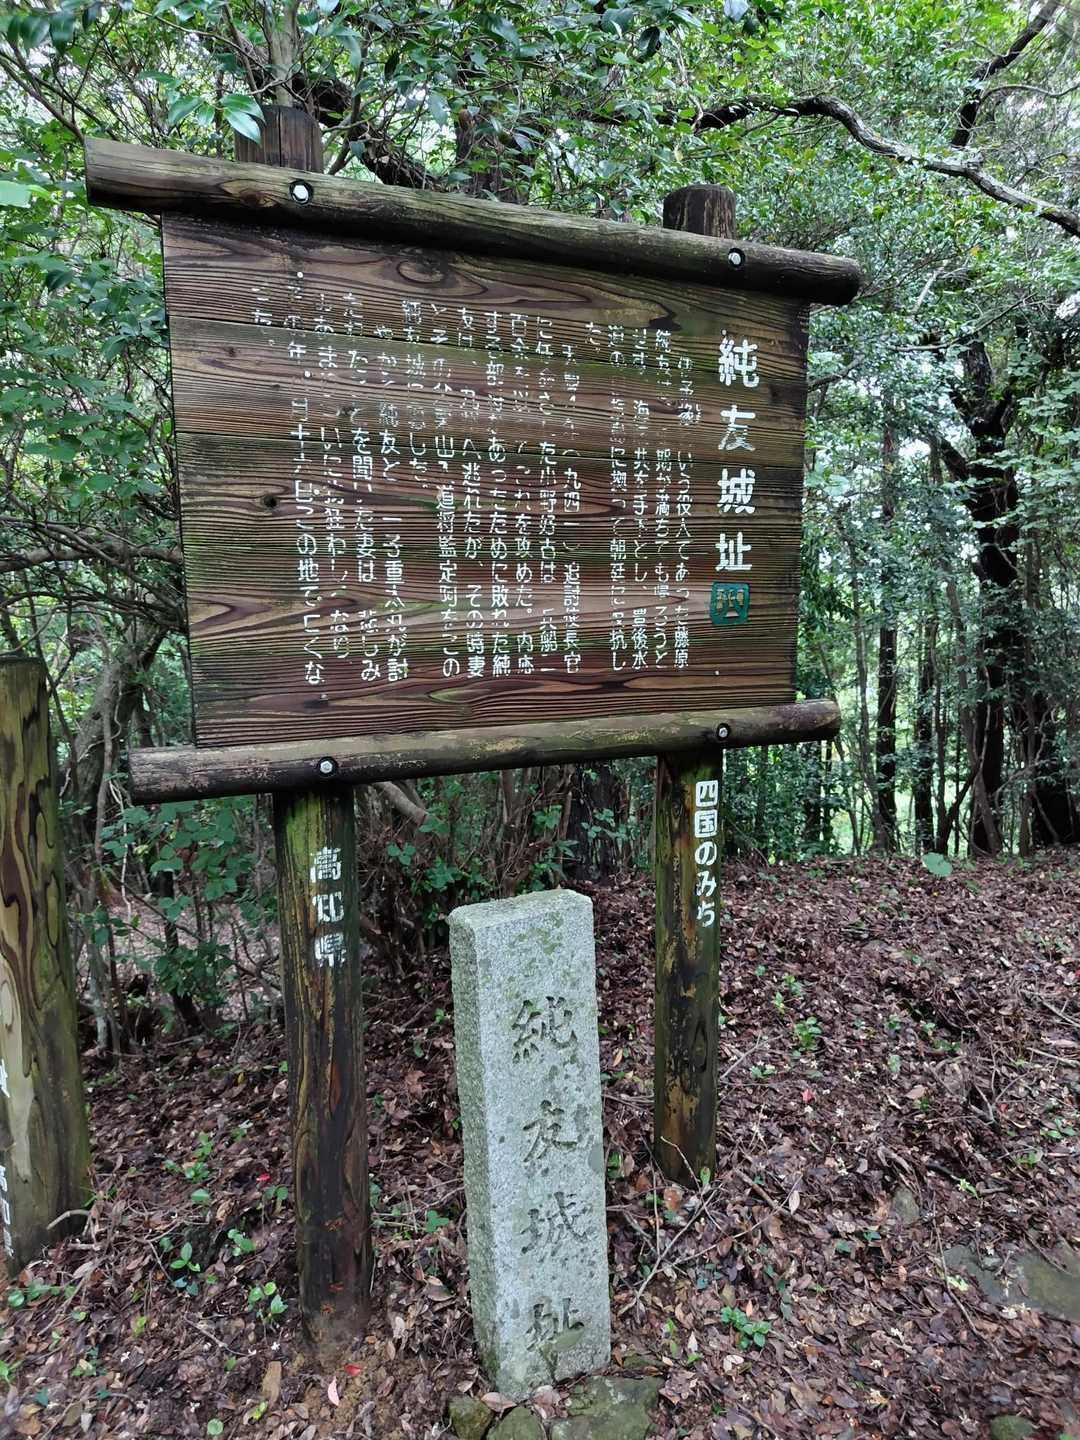 純友城址
いう役人であった藤原
純友は、期が満ちても帰ろうと
せず、海を手下とし、豊後水
道の日振島に拠って朝廷に反抗し
た。
天慶四年(九四一)追討使長官
に任命された小野好古は、兵船二
百余をってこれを攻めた。内応
する部はあったために敗れた純
友は、へ逃れたが、その時妻
とその父山入道将監定阿をこの
純友城にした。
やがて純友と一子重太丸が討
たれたことを聞いた妻は、悲しみ
のあまりついにい狂わしくなり
年・月十六日この地で亡くな
った。
四国のみち
高知県
純友城址